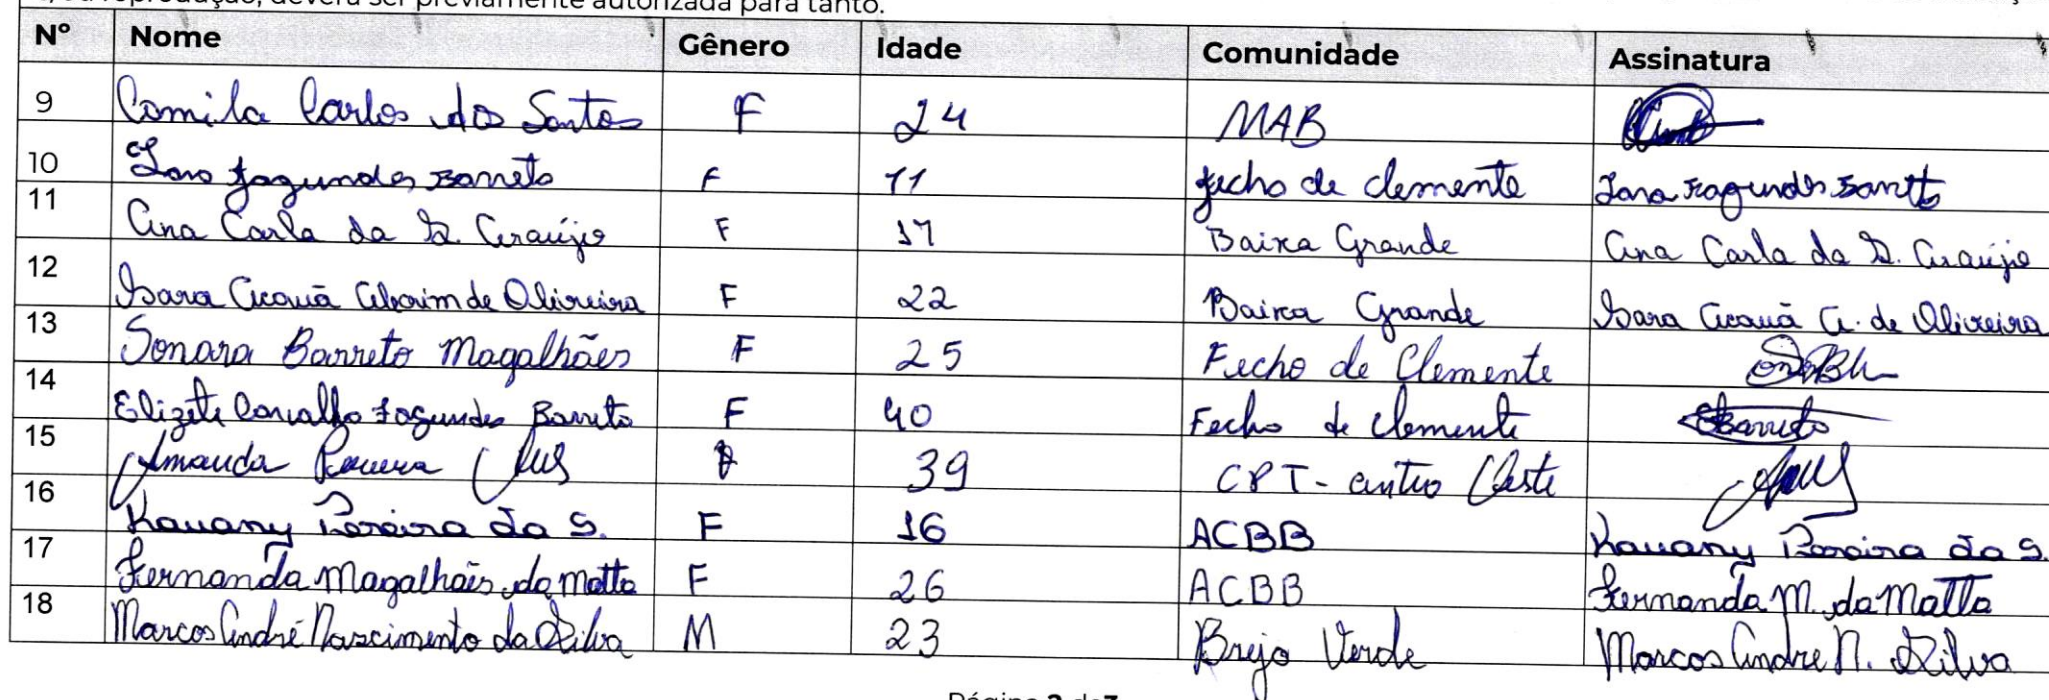 e/ou reprodução, deverá ser previamente autorizada para tanto.
Nº Nome Gênero Idade Comunidade Assinatura
9 Camila Carlos dos Santos F 24 MAB
10 Iara Fagundes Barreto F 11 fecho de clemente Iara Fagundes Barreto
11 Ana Carla da S. Araújo F 17 Baixa Grande Ana Carla da S. Araújo
12 Isara Acauã de Oliveira F 22 Baixa Grande Isara Acauã A. de Oliveira
13 Sonara Barreto Magalhães F 25 Fecho de Clemente
14 Elizete Carvalho Fagundes Barreto F 40 Fecho de clemente EBarreto
15 Amanda F 39 CPT - Centro Oeste
16 Kauany Pereira da S. F 16 ACBB Kauany Pereira da S.
17 Fernanda Magalhães da Matta F 26 ACBB Fernanda M. da Matta
18 Marcos André Nascimento da Silva M 23 Brejo Verde Marcos Andre N. Silva
Página 2 de 3